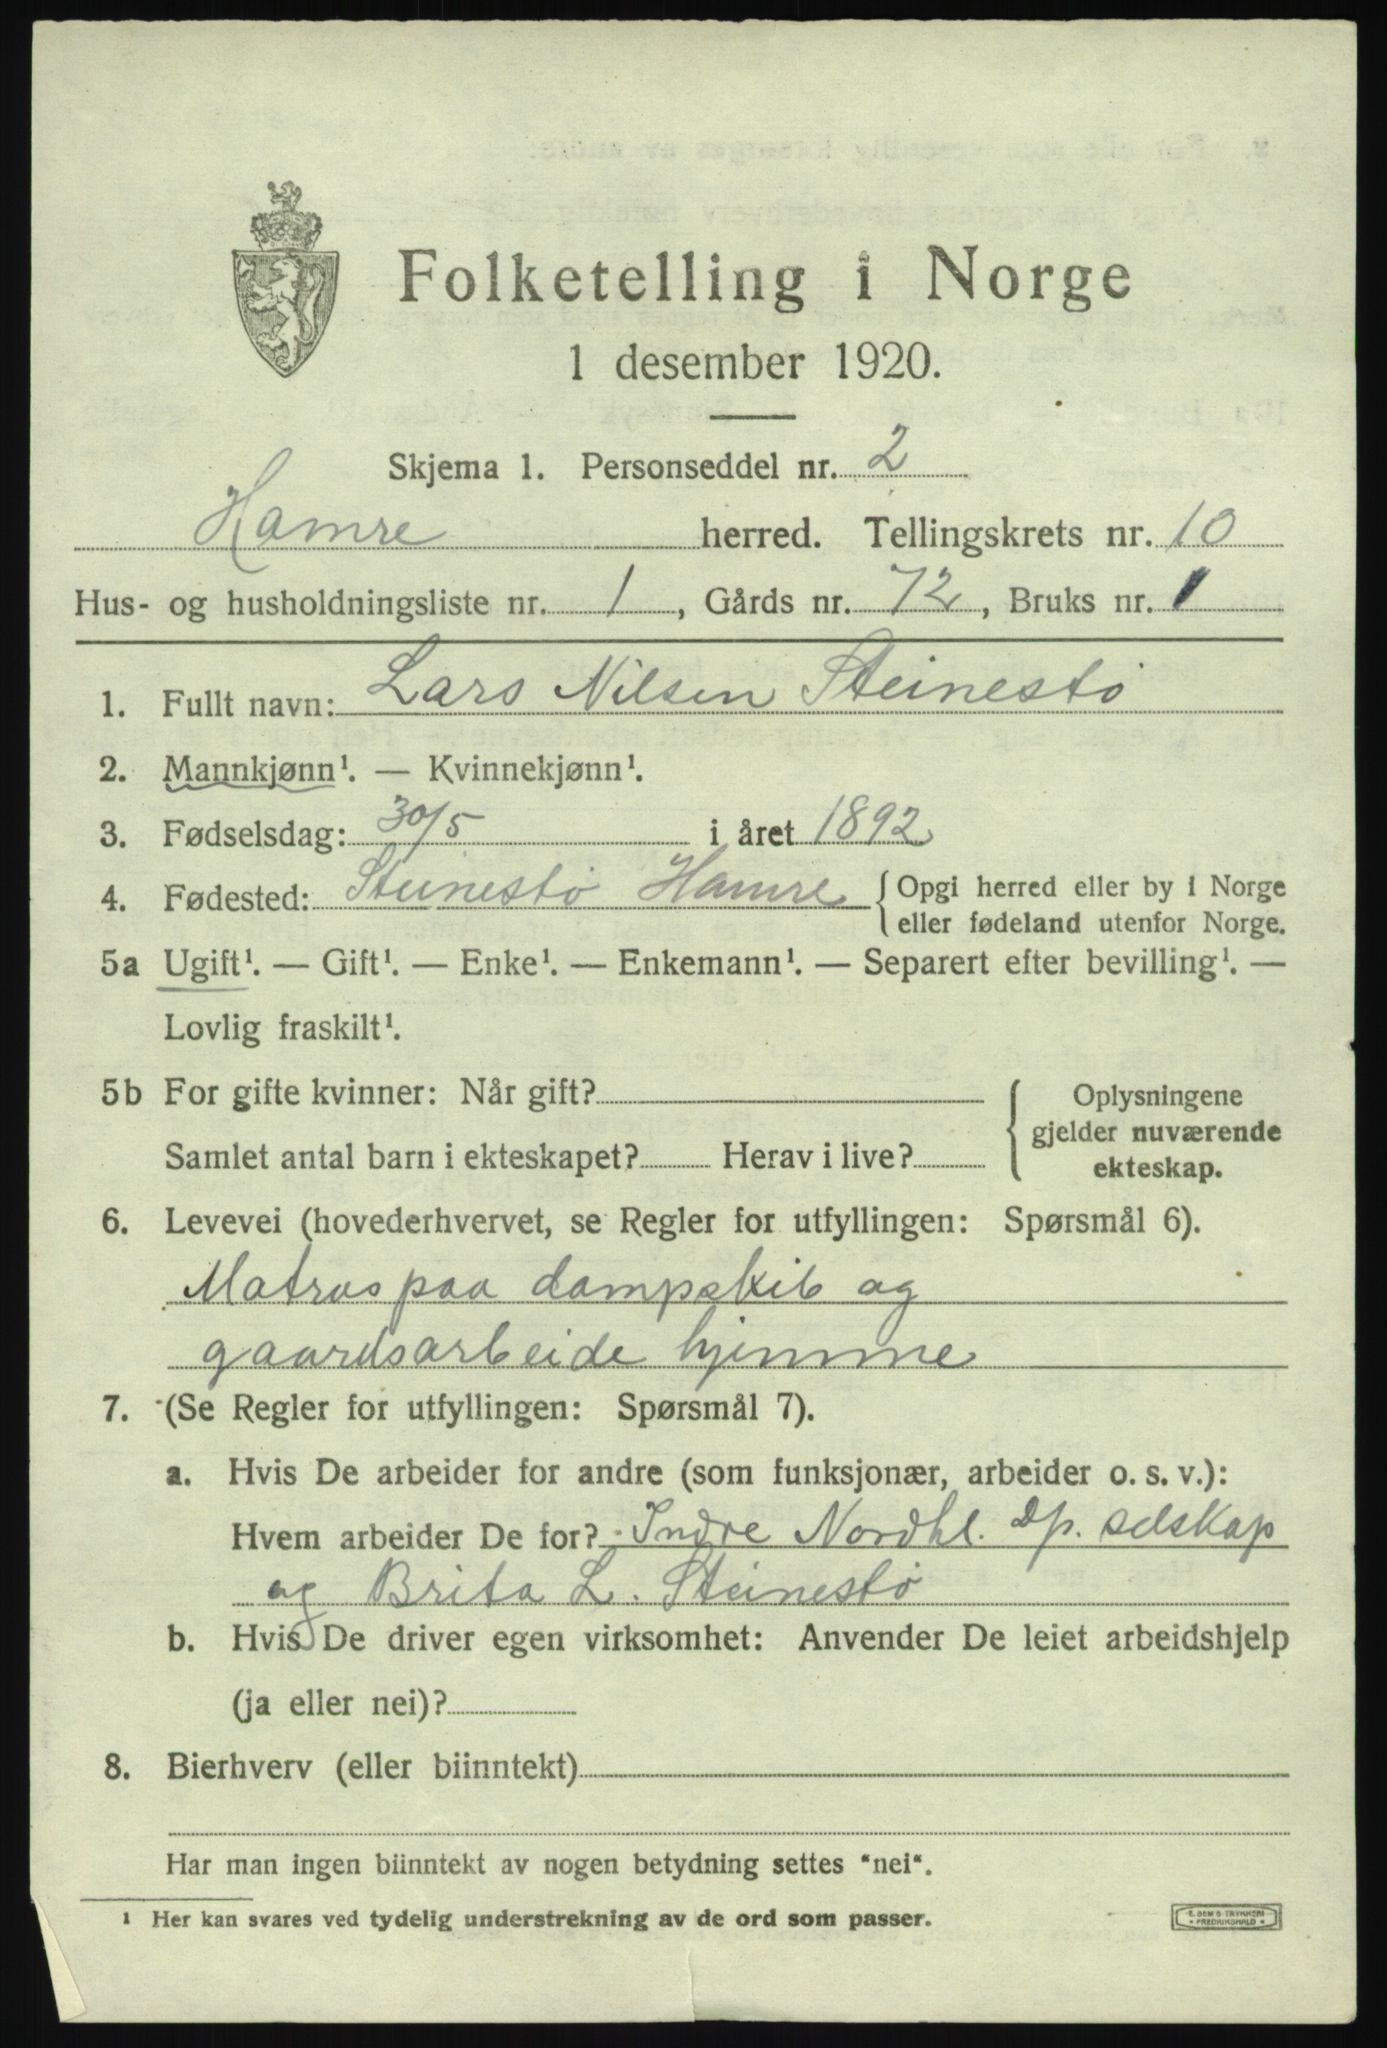 Folketelling i Norge
1 desember 1920.
Skjema 1. Personseddel nr. 2
Hamre herred. Tellingskrets nr. 10
Hus- og husholdningsliste nr. 1, Gårds nr. 72, Bruks nr. 1
1. Fullt navn: Lars Nilsen Steinestø
2. Mannkjønn¹. — Kvinnekjønn¹.
3. Fødselsdag: 30/5 i året 1892
4. Fødested: Steinestø Hamre { Opgi herred eller by i Norge
eller fødeland utenfor Norge.
5a Ugift¹. — Gift¹. — Enke¹. — Enkemann¹. — Separert efter bevilling¹. —
Lovlig fraskilt¹.
5b For gifte kvinner: Når gift?
Samlet antal barn i ekteskapet? Herav i live?
{ Oplysningene
gjelder nuværende
ekteskap.
6. Levevei (hovederhvervet, se Regler for utfyllingen: Spørsmål 6).
Matros paa dampskib og
gaardsarbeide hjemme
7. (Se Regler for utfyllingen: Spørsmål 7).
a. Hvis De arbeider for andre (som funksjonær, arbeider o. s. v.):
Hvem arbeider De for? Indre Nordhl. Dp. selskap
og Brita L. Steinestø
b. Hvis De driver egen virksomhet: Anvender De leiet arbeidshjelp
(ja eller nei)?
8. Bierhverv (eller biinntekt)
Har man ingen biinntekt av nogen betydning settes "nei".
¹ Her kan svares ved tydelig understrekning av de ord som passer.
E. SEM'S TRYKKERI
• FREDRIKSHALD •